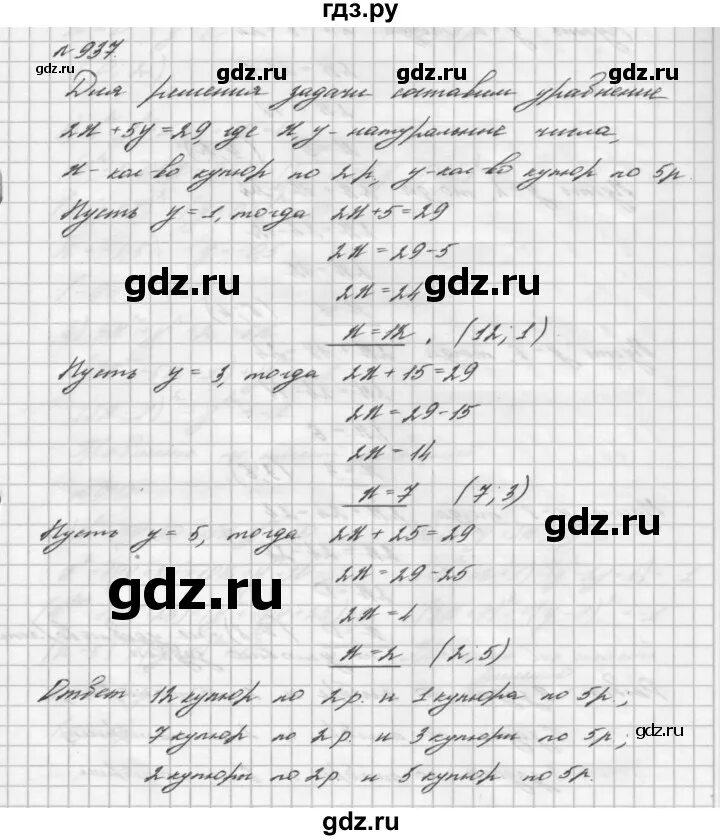 гдз.ру
№ 937.
gdz.ru gdz.ru gdz.ru
Для решения задачи составим уравнение
2x + 5y = 29, где x, y - натуральные числа,
x - кол-во купюр по 2 р., y - кол-во купюр по 5р.
Пусть y = 1, тогда 2x + 5 = 29
2x = 29 - 5
gdz.ru gdz.ru
2x = 24
x = 12. (12; 1)
Пусть y = 3, тогда 2x + 15 = 29
2x = 29 - 15
2x = 14
x = 7 (7; 3)
gdz.ru
Пусть y = 5, тогда 2x + 25 = 29
gdz.ru
2x = 29 - 25
2x = 4
x = 2 (2; 5)
gdz.ru gdz.ru
Ответ 12 купюр по 2 р. и 1 купюра по 5р.;
7 купюр по 2 р. и 3 купюры по 5р.;
gdz.ru
2 купюры по 2р. и 5 купюр по 5р.
gdz.ru